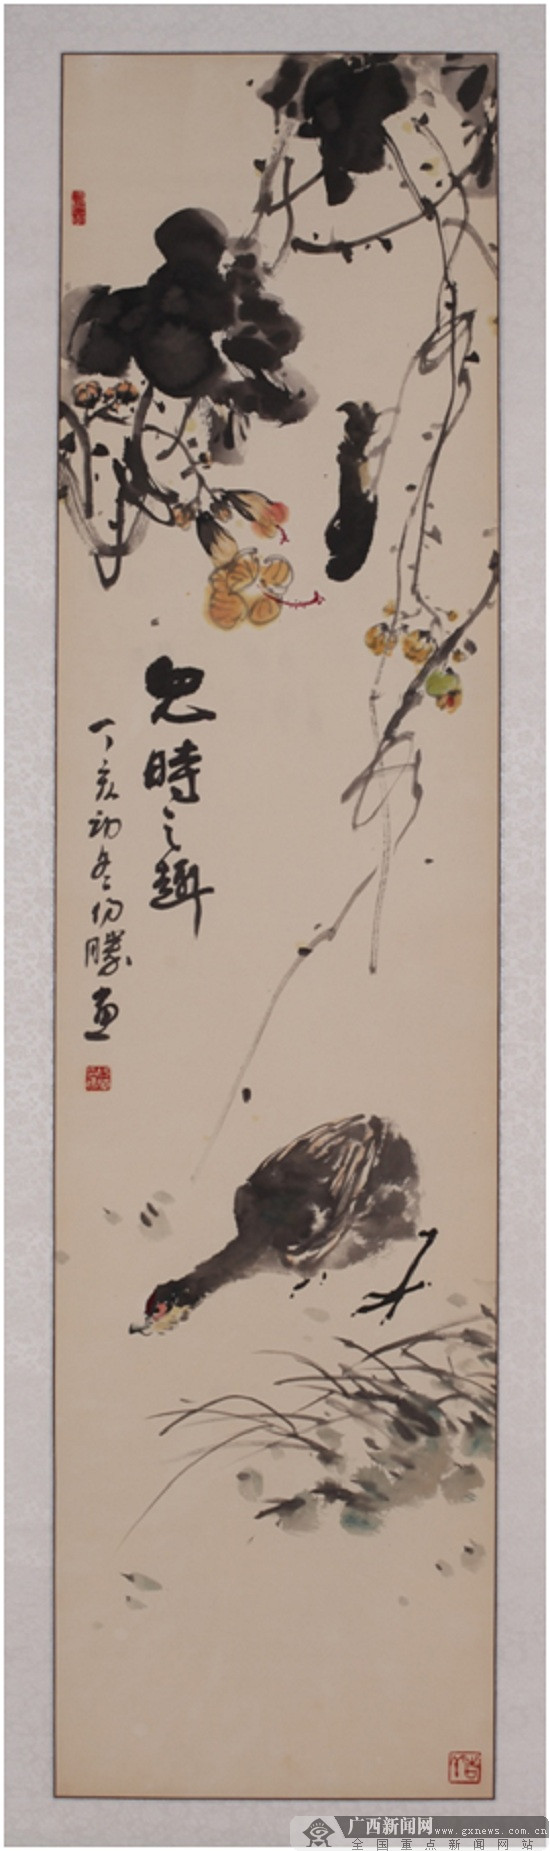 時之趣
丁亥初冬 勝画
广西新闻网 www.gxnews.com.cn
全国重点新闻网站